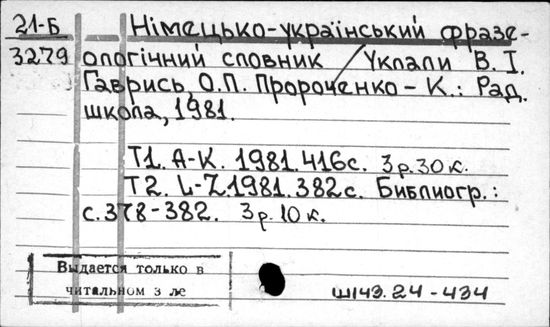 21-Б Німецько-український фразе-
3279 ологічний словник / Уклали В. І.
Гаврись, О.П. Пророченко – К.: Рад.
школа, 1981.
Т1. А-К. 1981. 416с. 3р.30к.
Т2. L-Z.1981. 382с. Библиогр.:
с.378-382. 3р.10к.
Выдается только в
читальном з ле
Ш143.24-434